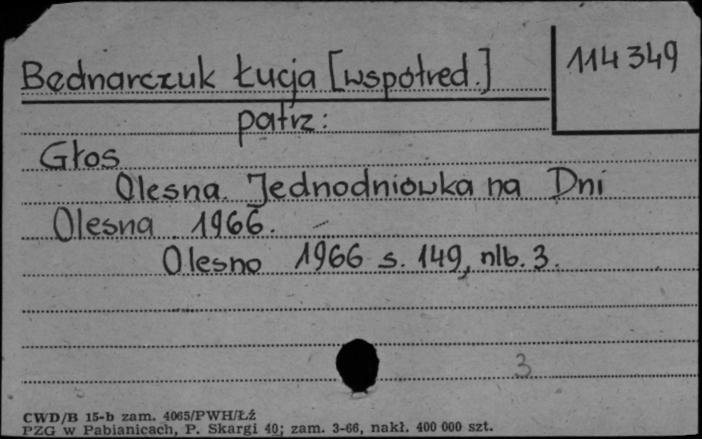 Bednarczuk Łucja [współred.]
114 349
patrz:
Głos
Olesna. Jednodniówka na Dni
Olesna 1966. –
Olesno 1966 s. 149, nlb. 3.
3
CWD/B 15-b zam. 4065/PWH/Łź
PZG w Pabianicach, P. Skargi 40; zam. 3-66, nakł. 400 000 szt.